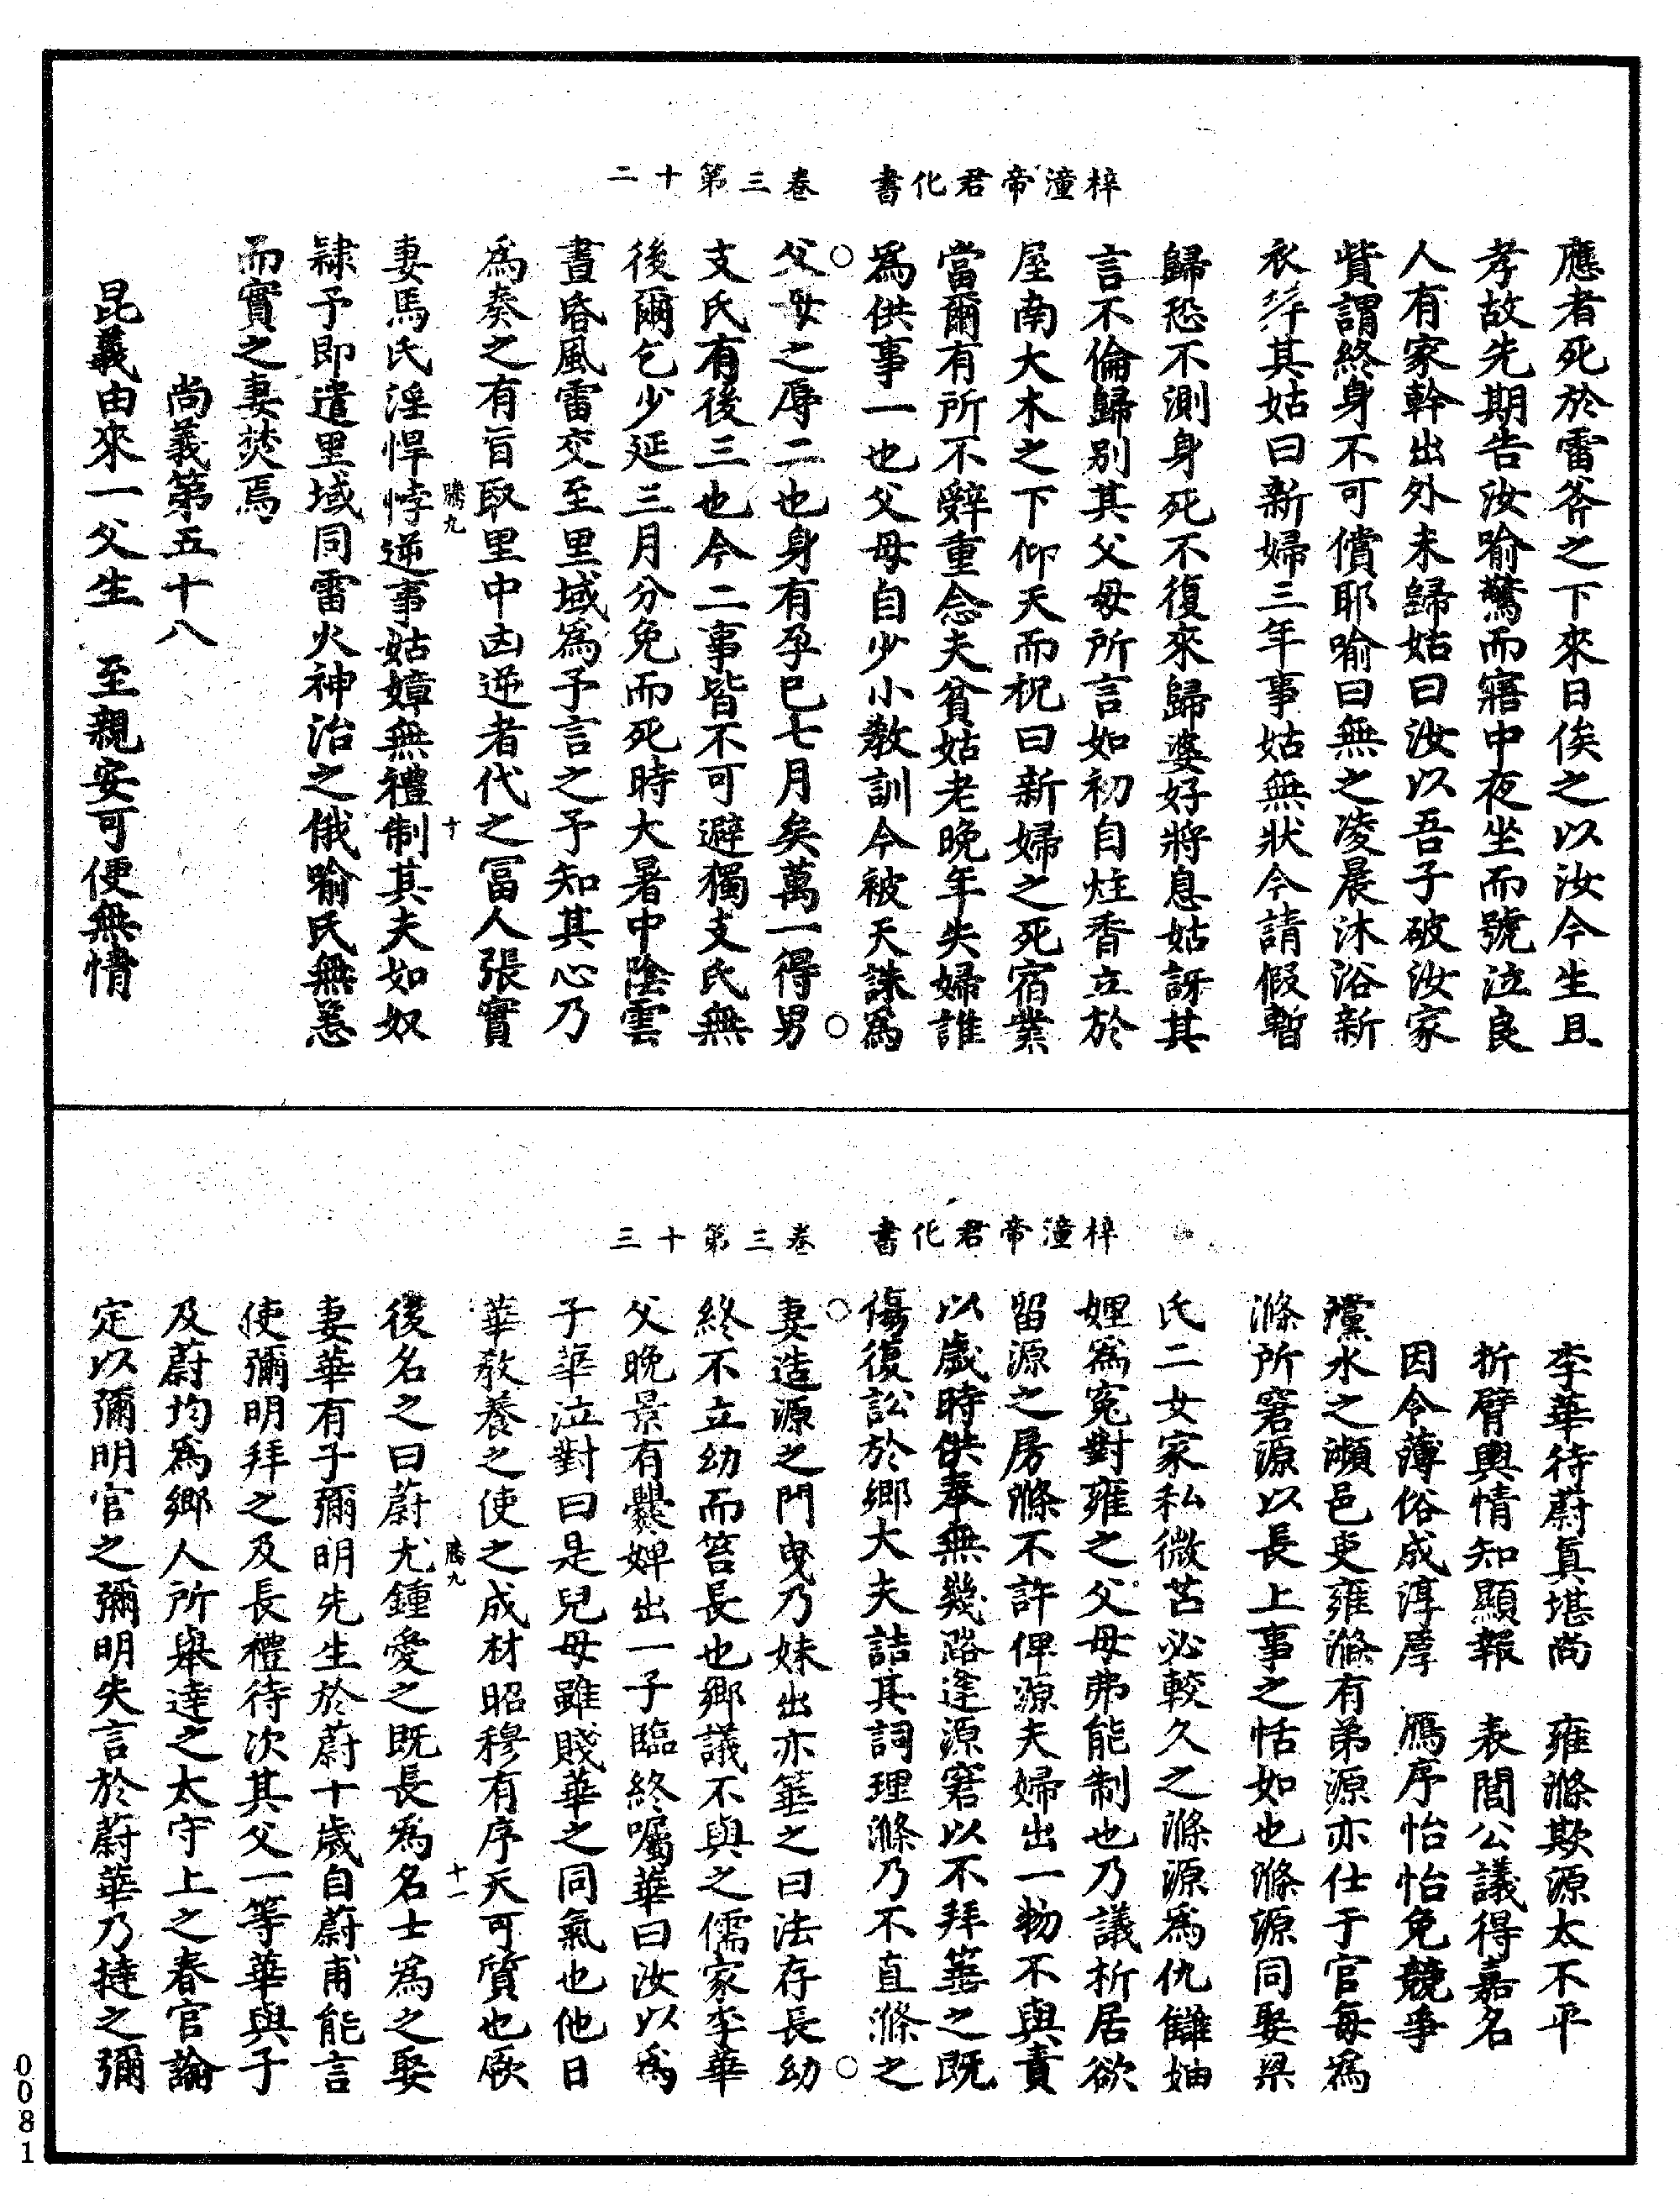 梓潼帝君化書　卷三第十二
應者死於雷斧之下來日俟之以汝今生且
孝故先期告汝喻驚而寤中夜坐而號泣良
人有家幹出外未歸姑曰汝以吾子破汝家
貲謂終身不可償耶喻曰無之凌晨沐浴新
衣拜其姑曰新婦三年事姑無狀今請假暫
歸恐不測身死不復來歸婆好將息姑訝其
言不倫歸別其父母所言如初自炷香立於
屋南大木之下仰天而祝曰新婦之死宿業
當爾有所不辭重念夫貧姑老晚年失婦誰
為供事一也父母自少小教訓今被天誅為
父母之辱二也身有孕已七月矣萬一得男
支氏有後三也今二事皆不可避獨支氏無
後爾乞少延三月分免而死時大暑中陰雲
晝昏風雷交至里域為予言之予知其心乃
為奏之有旨取里中凶逆者代之富人張實
騰九　十
妻馬氏淫悍悖逆事姑嫜無禮制其夫如奴
隸予即遣里域同雷火神治之俄喻氏無恙
而實之妻焚焉
尚義第五十八
昆義由來一父生　至親安可便無情
梓潼帝君化書　卷三第十三
李華待蔚真堪尚　雍滌欺源太不平
折臂輿情知顯報　表閭公議得嘉名
因令薄俗成淳厚　鴈序怡怡免競爭
瀻水之瀕邑吏雍滌有弟源亦仕于官每為
滌所窘源以長上事之恬如也滌源同娶梁
氏二女家私微苦必較久之滌源為仇讎妯
娌為冤對雍之父母弗能制也乃議析居欲
留源之房滌不許俾源夫婦出一物不與責
以歲時供奉無幾路逢源窘以不拜箠之既
傷復訟於鄉大夫詰其詞理滌乃不直滌之
妻造源之門曳乃妹出亦箠之曰法存長幼
終不立幼而笞長也鄉議不與之儒家李華
父晚景有爨婢出一子臨終囑華曰汝以為
子華泣對曰是兒母雖賤華之同氣也他日
華教養之使之成材昭穆有序天可質也厥
騰九　十一
後名之曰蔚尤鍾愛之既長為名士為之娶
妻華有子彌明先生於蔚十歲自蔚甫能言
使彌明拜之及長禮待次其父一等華與子
及蔚均為鄉人所舉達之太守上之春官論
定以彌明官之彌明失言於蔚華乃撻之彌
0081